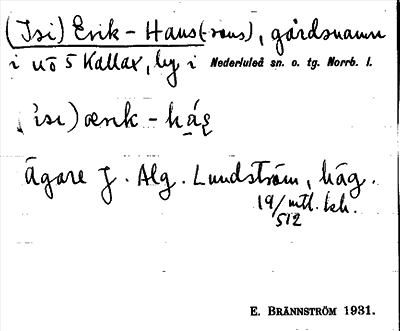 (Isi) Erik-Hans(-sons), gårdsnamn
i no 5 Kallax, by i Nederluleå sn. o. tg. Norrb. l.
ägare J. Alg. Lundström, häg.
19/512 mtl. kh.
E. BRÄNNSTRÖM 1931.